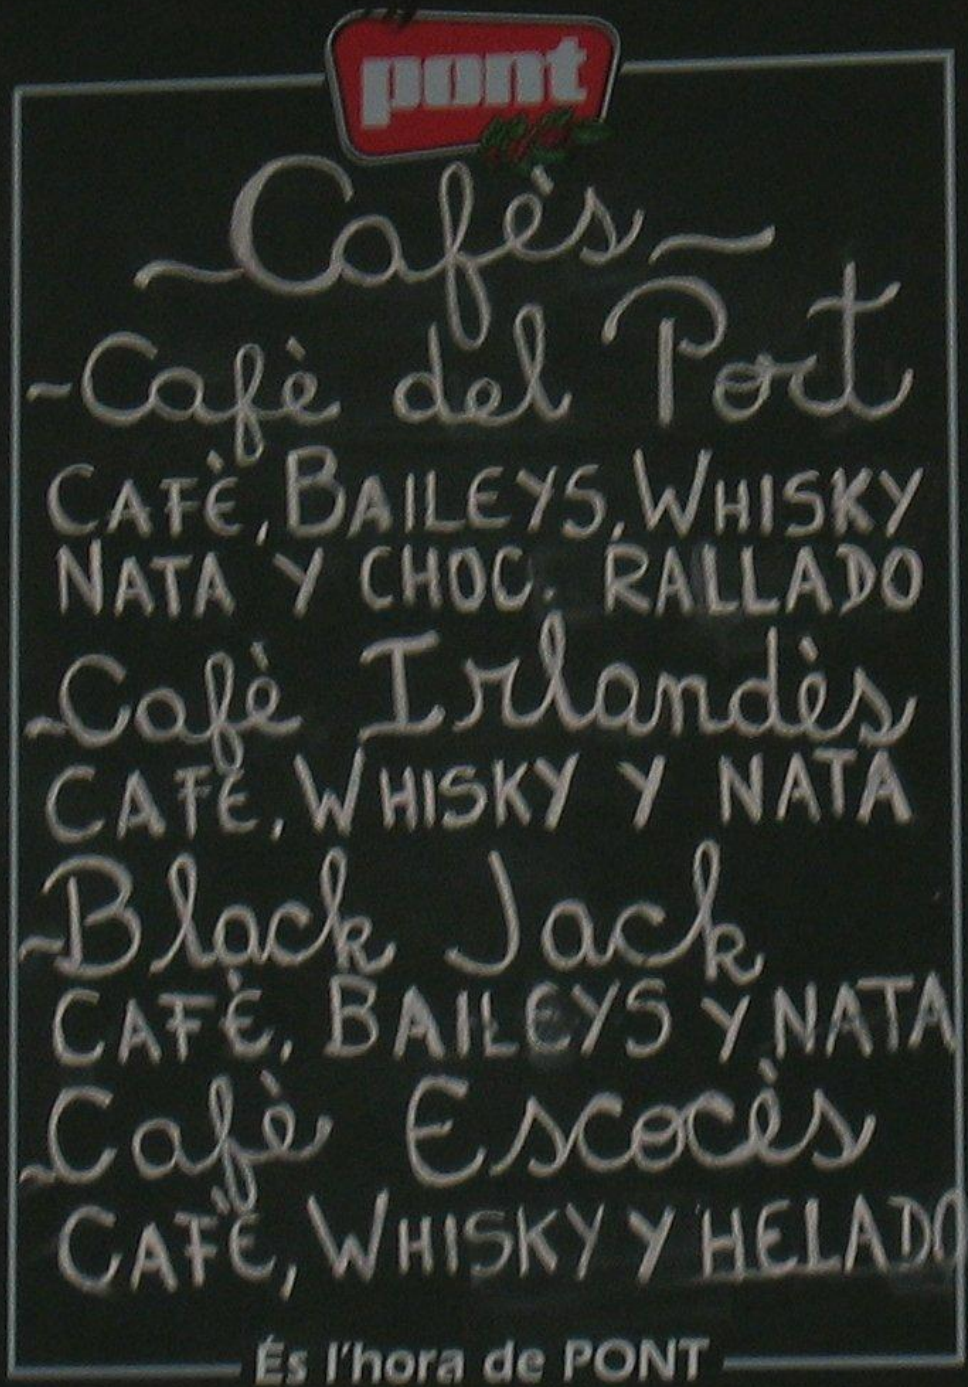 pont
~Cafés~
-Cafè del Port
CAFÈ, BAILEYS, WHISKY
NATA Y CHOC. RALLADO
-Cafè Irlandès
CAFÈ, WHISKY Y NATA
-Black Jack
CAFÈ, BAILEYS Y NATA
-Cafè Escocès
CAFÈ, WHISKY Y HELADO
És l'hora de PONT